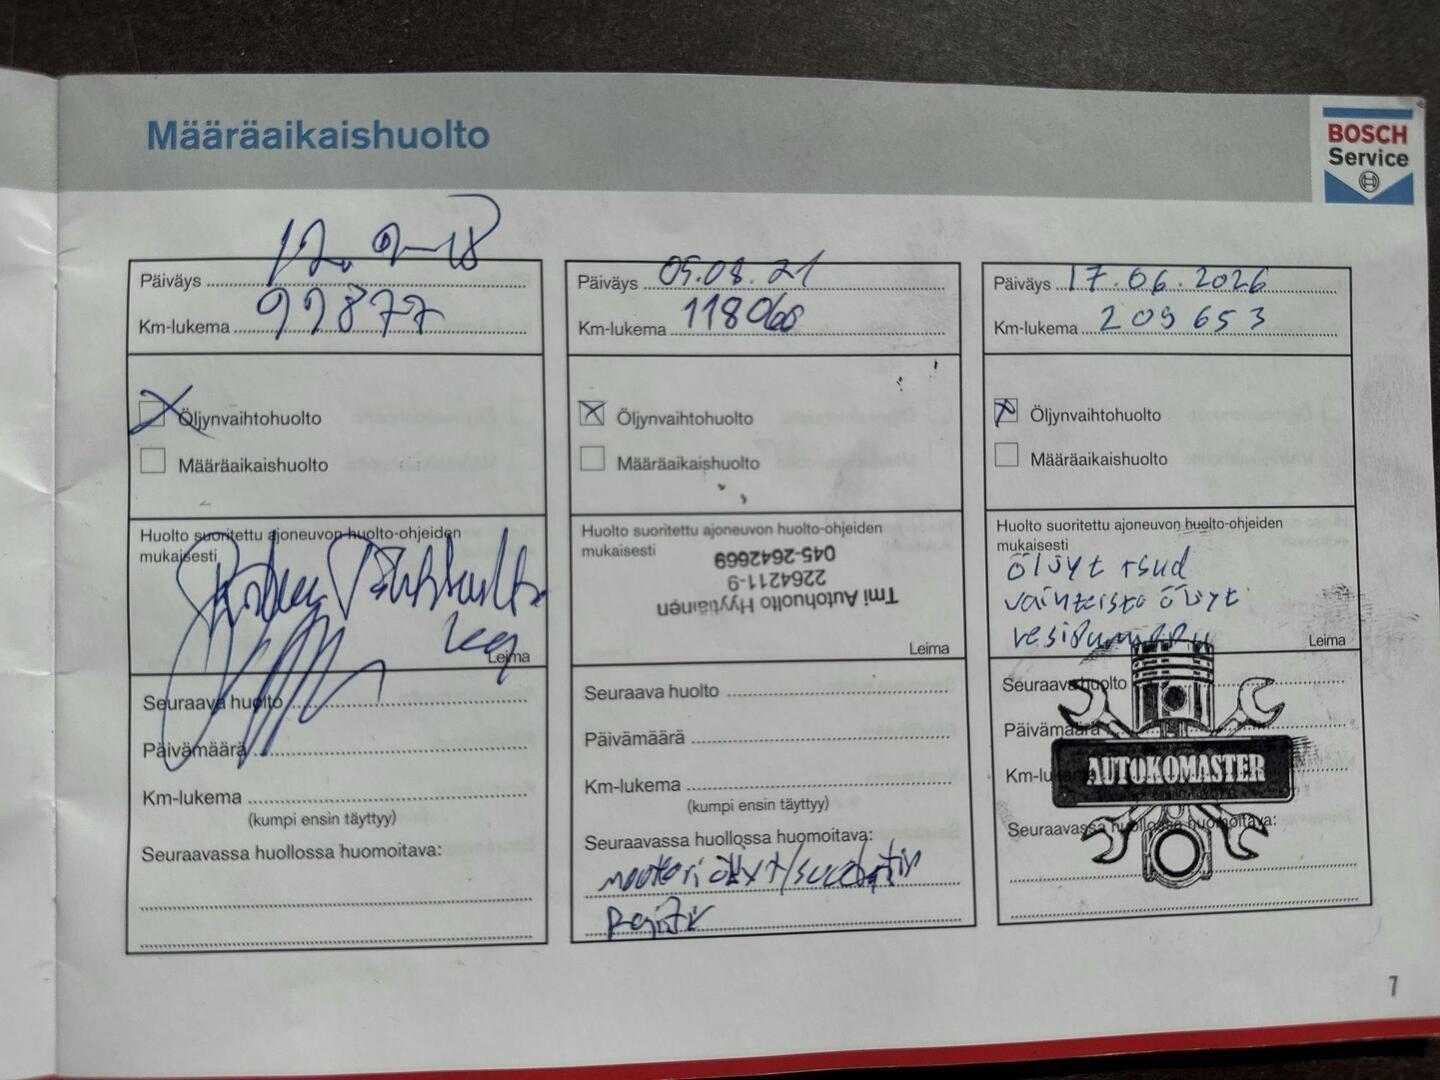 Määräaikaishuolto
BOSCH
Service
Päiväys
Km-lukema 99877
Öljynvaihtohuolto
Määräaikaishuolto
Huolto suoritettu ajoneuvon huolto-ohjeiden
mukaisesti
Leima
Seuraava huolto
Päivämäärä
Km-lukema
(kumpi ensin täyttyy)
Seuraavassa huollossa huomoitava:
Päiväys 05.08.21
Km-lukema 118068
Öljynvaihtohuolto
Määräaikaishuolto
Huolto suoritettu ajoneuvon huolto-ohjeiden
mukaisesti
Tmi Autohuolto Hyytiäinen
2264211-9
045-2642669
Leima
Seuraava huolto
Päivämäärä
Km-lukema
(kumpi ensin täyttyy)
Seuraavassa huollossa huomoitava:
moottori
Päiväys 17.06.2026
Km-lukema 209653
Öljynvaihtohuolto
Määräaikaishuolto
Huolto suoritettu ajoneuvon huolto-ohjeiden
mukaisesti
öljyt
öljyt
Leima
Seuraava huolto
Päivämäärä
AUTOKOMASTER
Seuraavassa huollossa huomoitava:
7